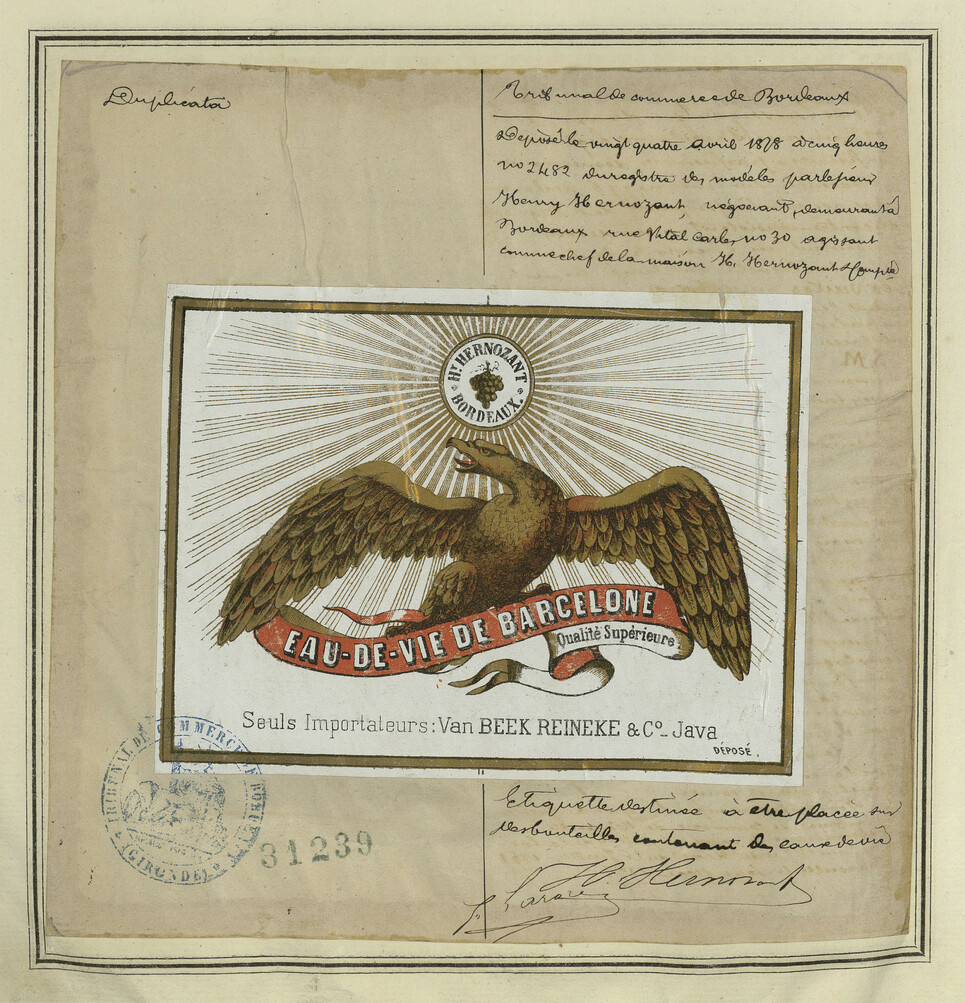 Duplicata
Tribunal de commerce de Bordeaux
Déposé le vingt quatre avril 1878 à cinq heures
no 2482 du registre des modèles par le sieur
Henry Hernozant, négociant, demeurant à
Bordeaux rue Vital Carles, no 30 agissant
comme chef de la maison H. Hernozant & Compie
HY HERNOZANT
BORDEAUX.
EAU-DE-VIE DE BARCELONE
Qualité Supérieure
Seuls Importateurs: Van BEEK REINEKE & Co_ Java
DÉPOSÉ.
TRIBUNAL DE COMMERCE
(GIRONDE)
31239
Etiquette destinée à être placée sur
des bouteilles contenant des eaux de vie
H. Hernozant